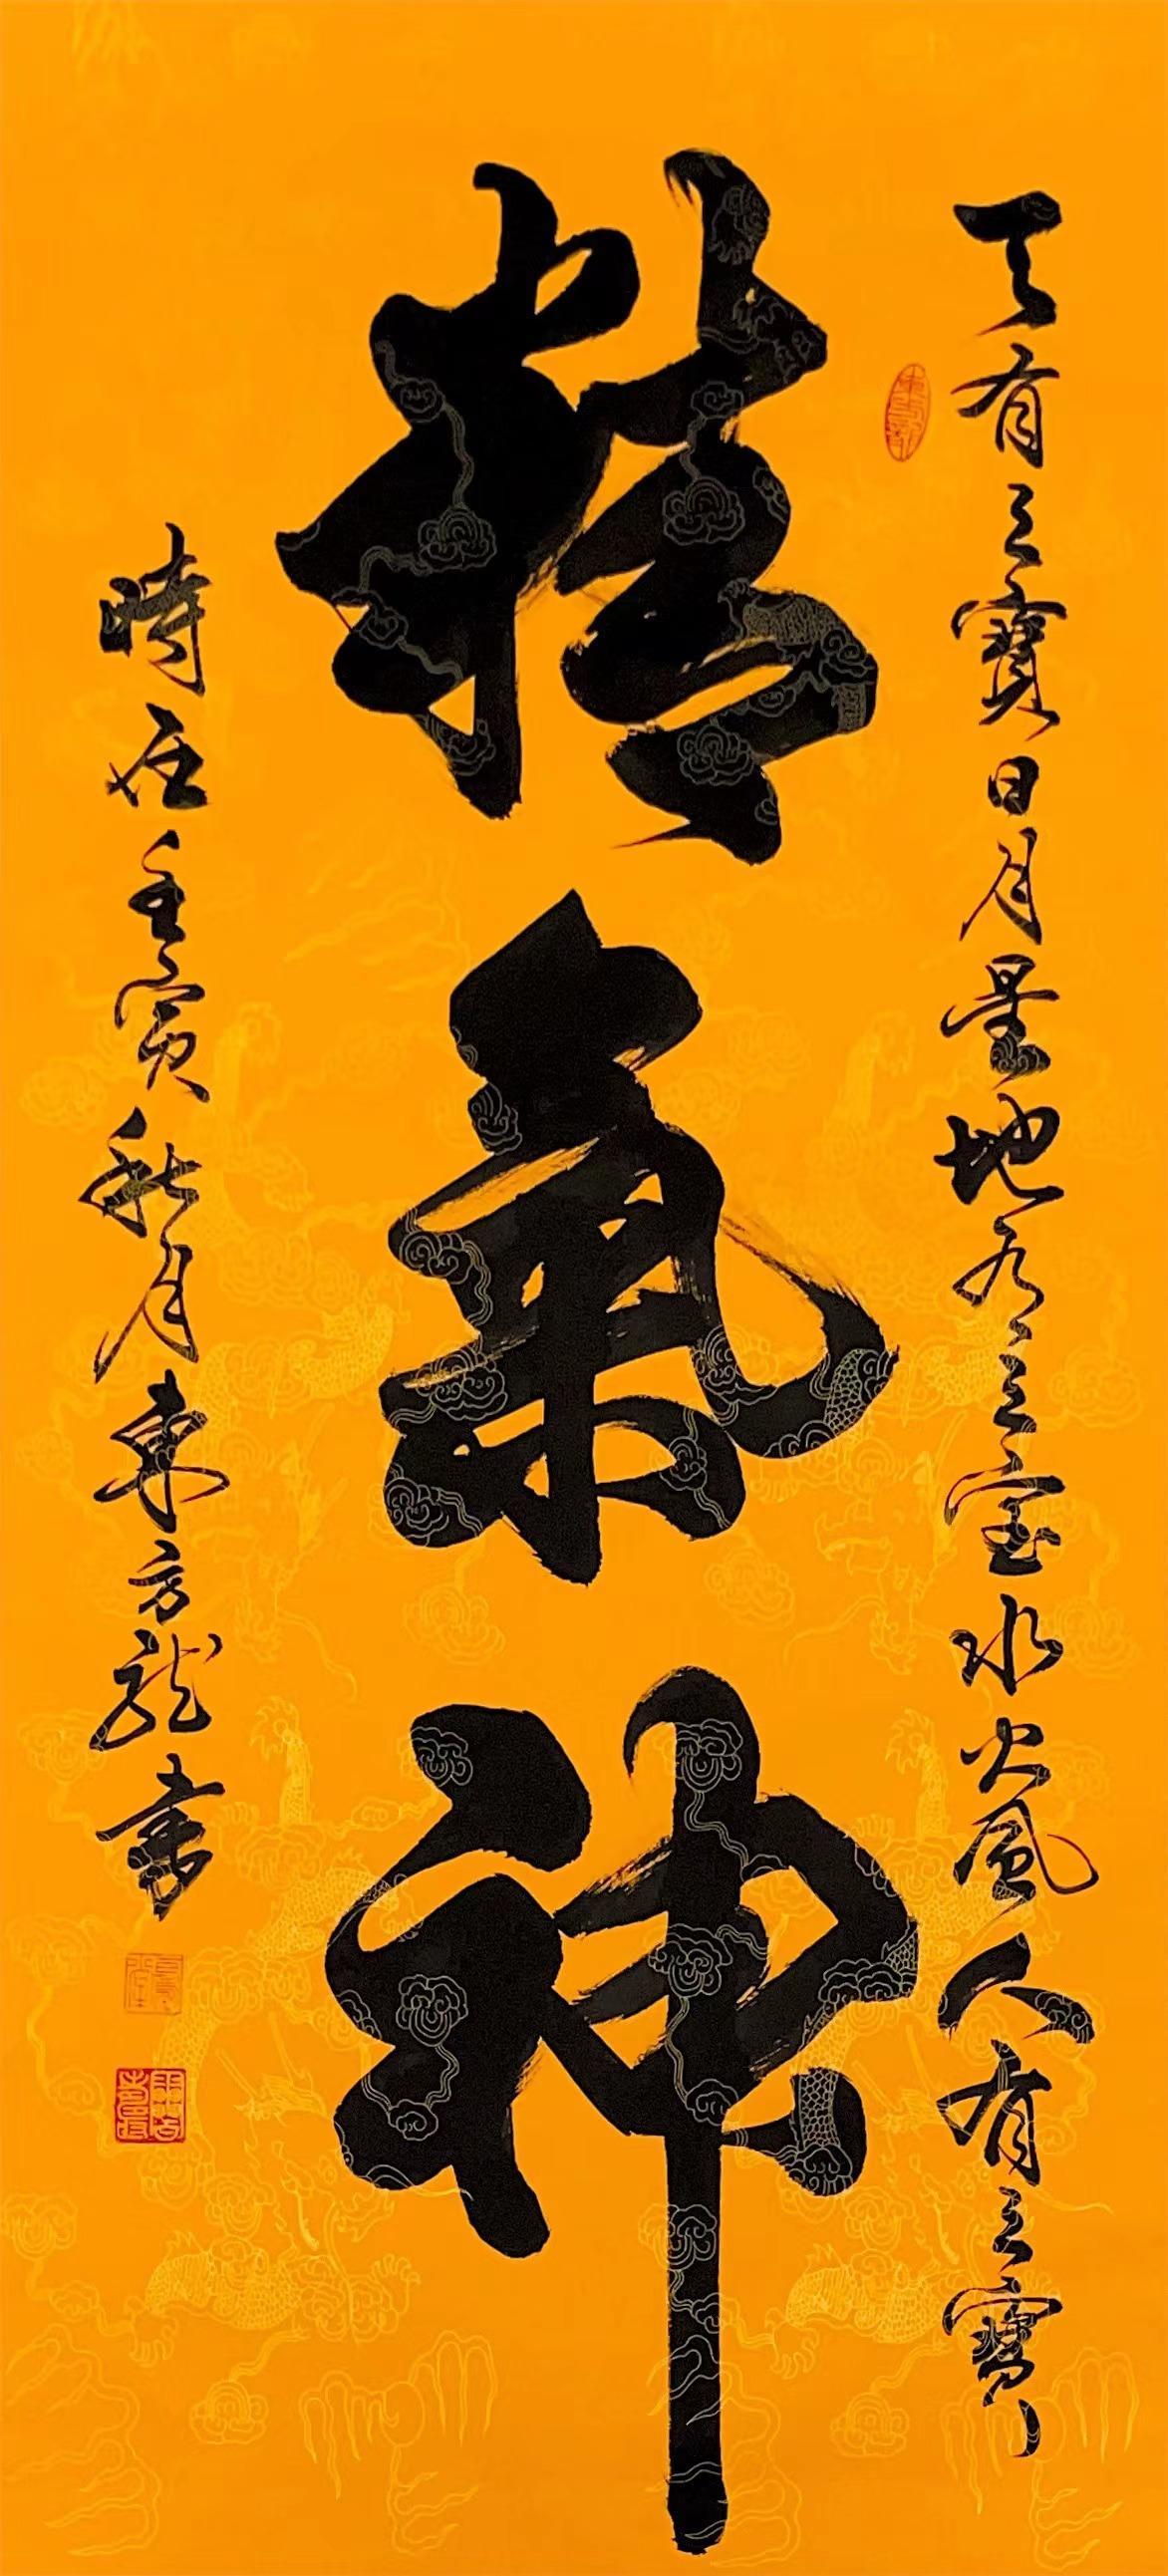 天有三寶日月星地有三宝水火風人有三寶
精氣神
時在壬寅秋月東方龍書